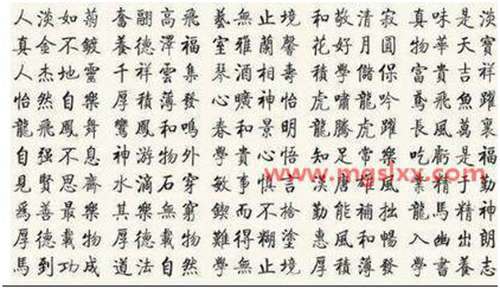 人淡如菊 奮翮高飛 藝無止境 和敬清寂 真味是淡
真金不鍍 養德澤福 室雅蘭馨 花好月圓 物華天寶
人杰地靈 千祥雲集 琴 壽 學 富貴吉祥
怡然自樂 厚積薄發 曠神怡 虎嘯龍吟 鳶飛魚躍
龍飛鳳舞 鸞鳳和鳴 春和景明 龍騰虎躍 長風萬裏
自强不息 神游物外 貴心悟 知足常樂 吃虧是福
www.mgslxx.com
見賢思齊 水滴石穿 敏事慎言 漢唐雄風 業精于勤
爲善最樂 其樂無窮 鍥而不捨 勤能補拙 龍馬精神
厚德載物 厚德載物 難得糊塗 惠風和暢 入幽出朗
馬到功成 道法自然 學無止境 厚積薄發 學書養志